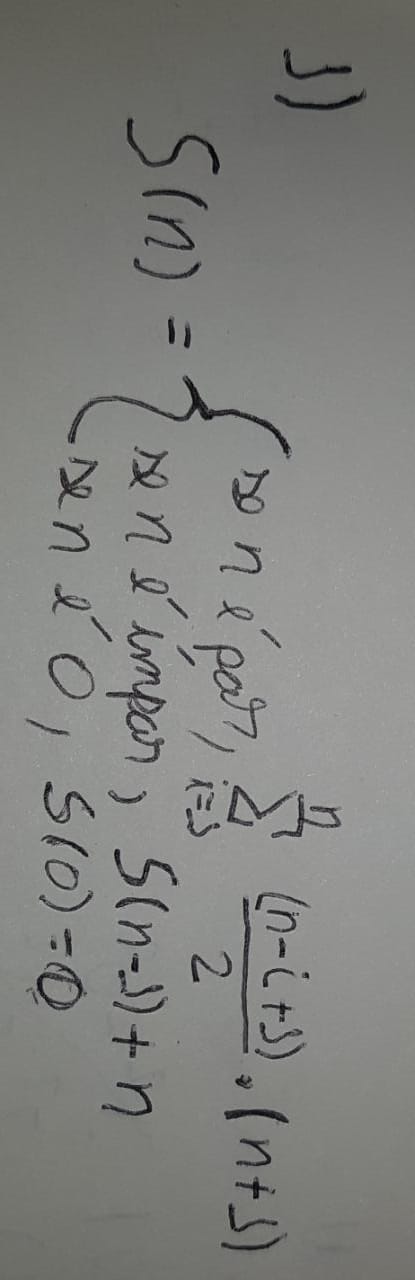 1)
S(n) = { se n é par, ∑_{i=1}^{n} (n-i+1)/2 · (n+1)
se n é ímpar, S(n-1)+n
se n é 0, S(0)=0